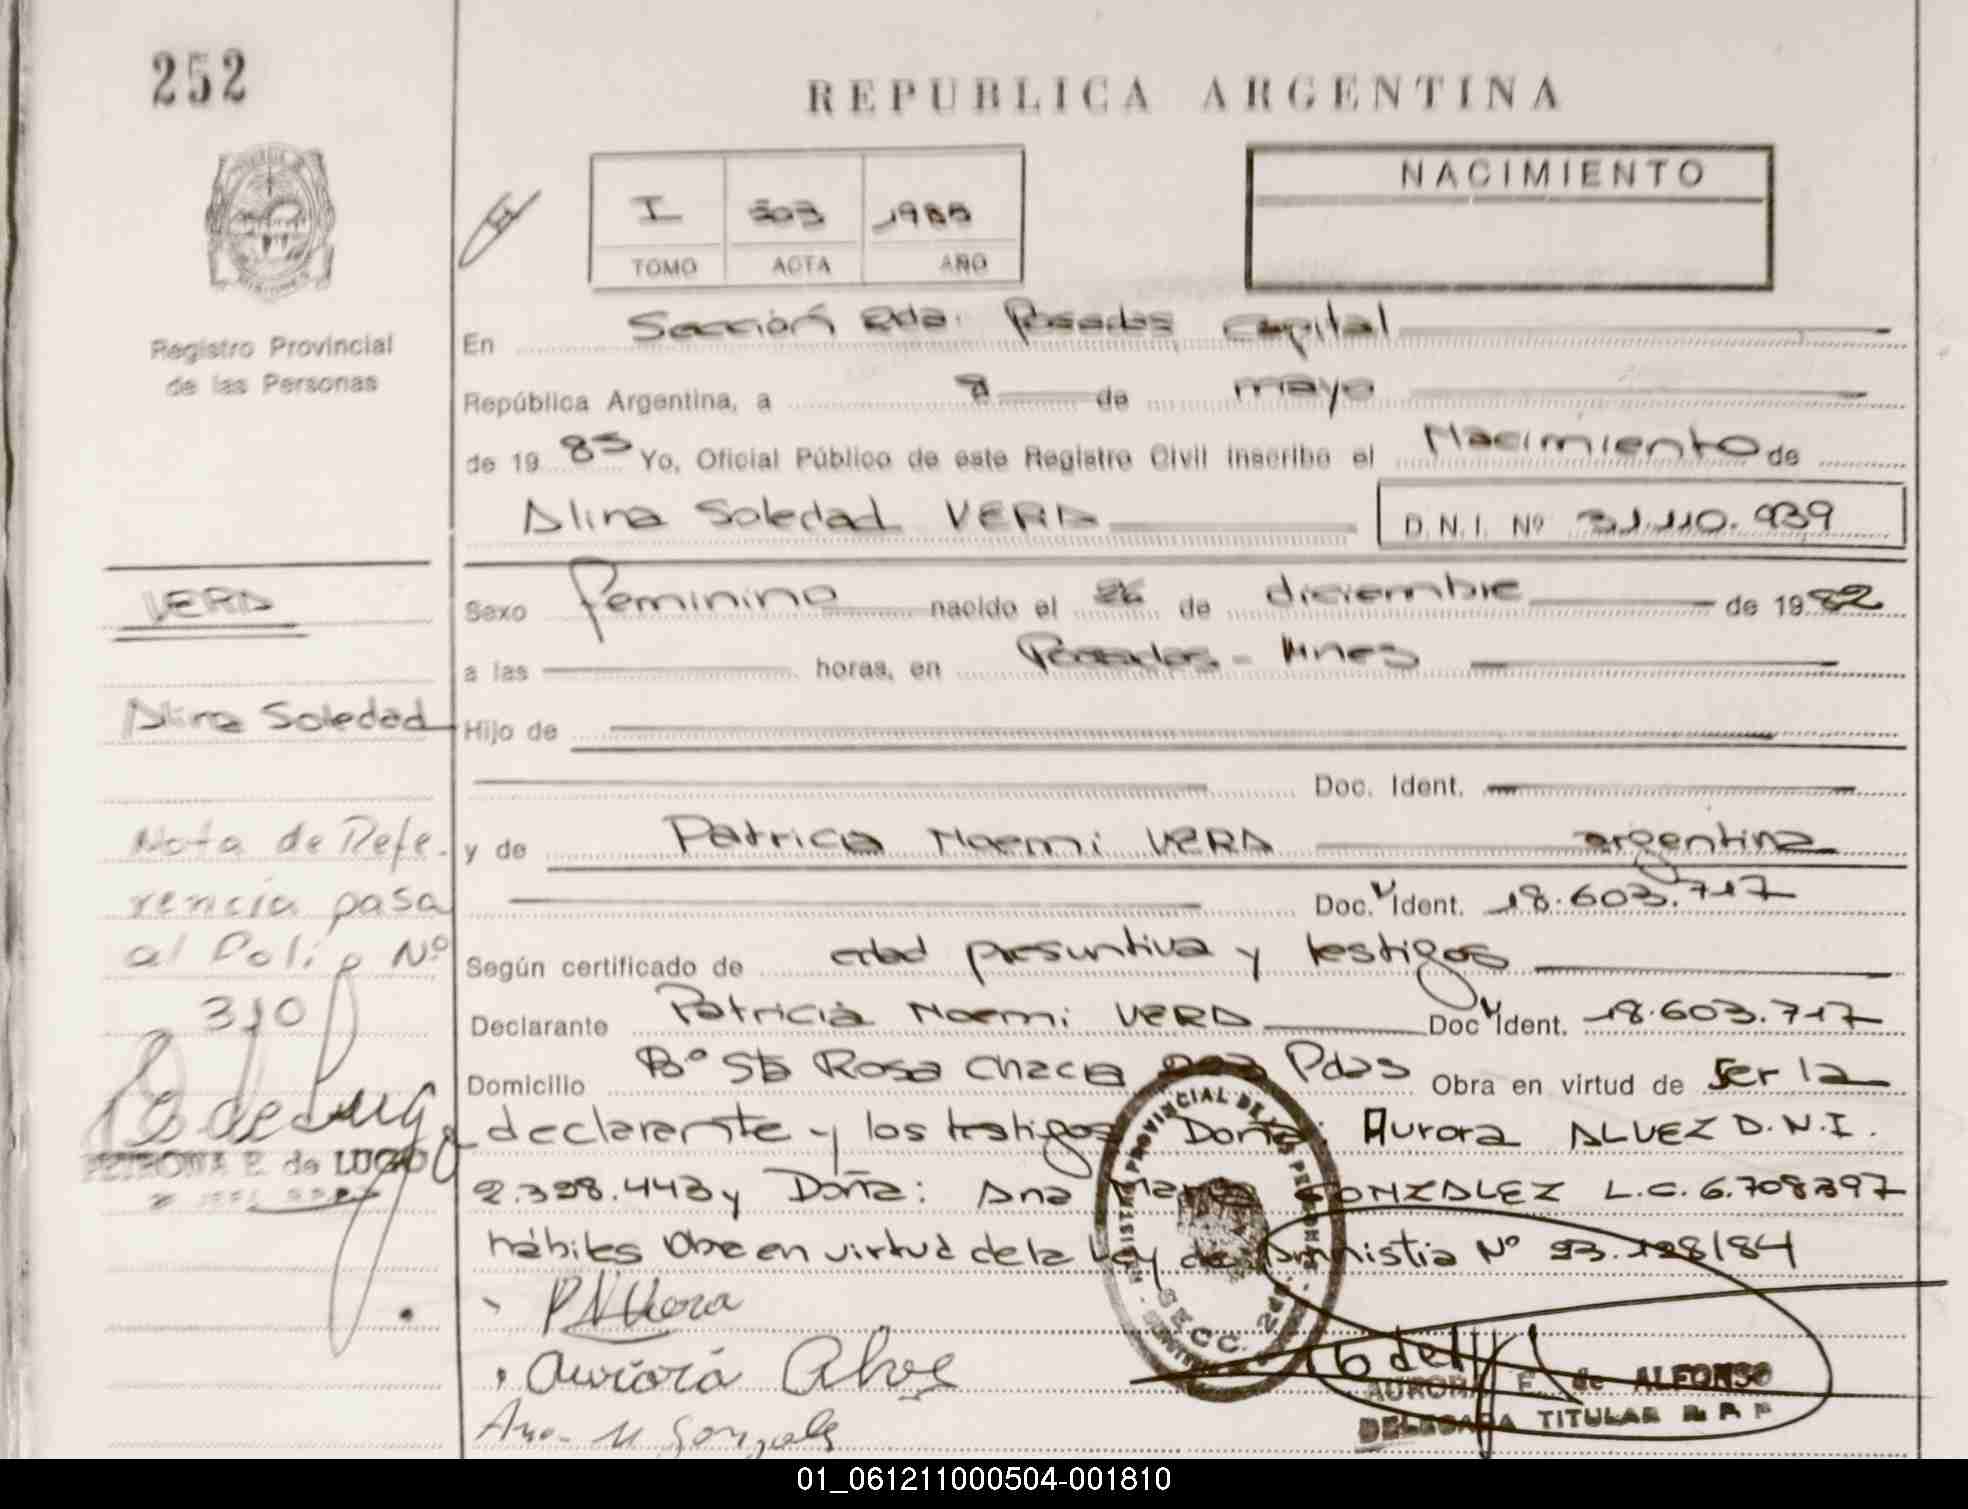 252
REPUBLICA ARGENTINA
NACIMIENTO
I 303 1985
TOMO ACTA AÑO
Registro Provincial
de las Personas
En Sección 2da. Posadas Capital
República Argentina, a 8 de mayo
de 1985 Yo, Oficial Público de este Registro Civil inscribo el Nacimiento de
Alina Soledad VERA D.N.I. Nº 31.110.939
VERA
Sexo femenino nacido el 26 de diciembre de 1982
a las horas, en Posadas - Mnes
Alina Soledad
Hijo de
Doc. Ident.
y de Patricia Noemi VERA argentina
Doc. Ident. 18.603.717
Nota de Refe-
rencia pasa
al Folio Nº
310
Según certificado de edad presuntiva y testigos
Declarante Patricia Noemi VERA Doc Ident. 18.603.717
Domicilio Bº Sta Rosa Chacra Pdas Obra en virtud de ser la
declarante y los testigos Doña: Aurora ALVEZ D.N.I.
2.398.443 y Doña: Ana María GONZALEZ L.C. 6.708397
hábiles Obra en virtud de la Ley de Amnistia Nº 23.128/84
PETRONA E. de LUGO
PNVera
Aurora Alves
Ana M Gonzales
REGISTRO PROVINCIAL DE LAS PERSONAS
SECC. 2da.
AURORA E. de ALFONSO
DELEGADA TITULAR R.P.P
01_061211000504-001810